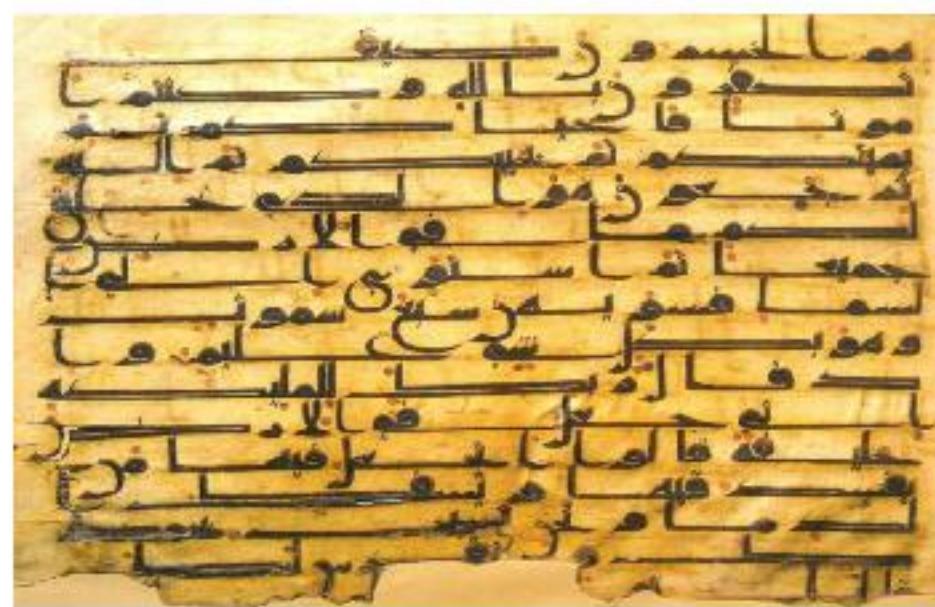 هم الخسرون كيف
تكفرون بالله وكنتم ا
موتا فاحيكم ثم
يميتكم ثم يحييكم ثم اليه
ترجعون هو الذي خلق
لكم ما في الارض
جميعا ثم استوى الى ا
لسما فسويهن سبع سموت
وهو بكل شي عليم و ا
ذ قال ربك للمليكه
اني جاعل في الارض
خليفه قالوا اتجعل فيها من
يفسد فيها ويسفك ا
لدما ونحن نسبح بحمد
ك ونقدس لك